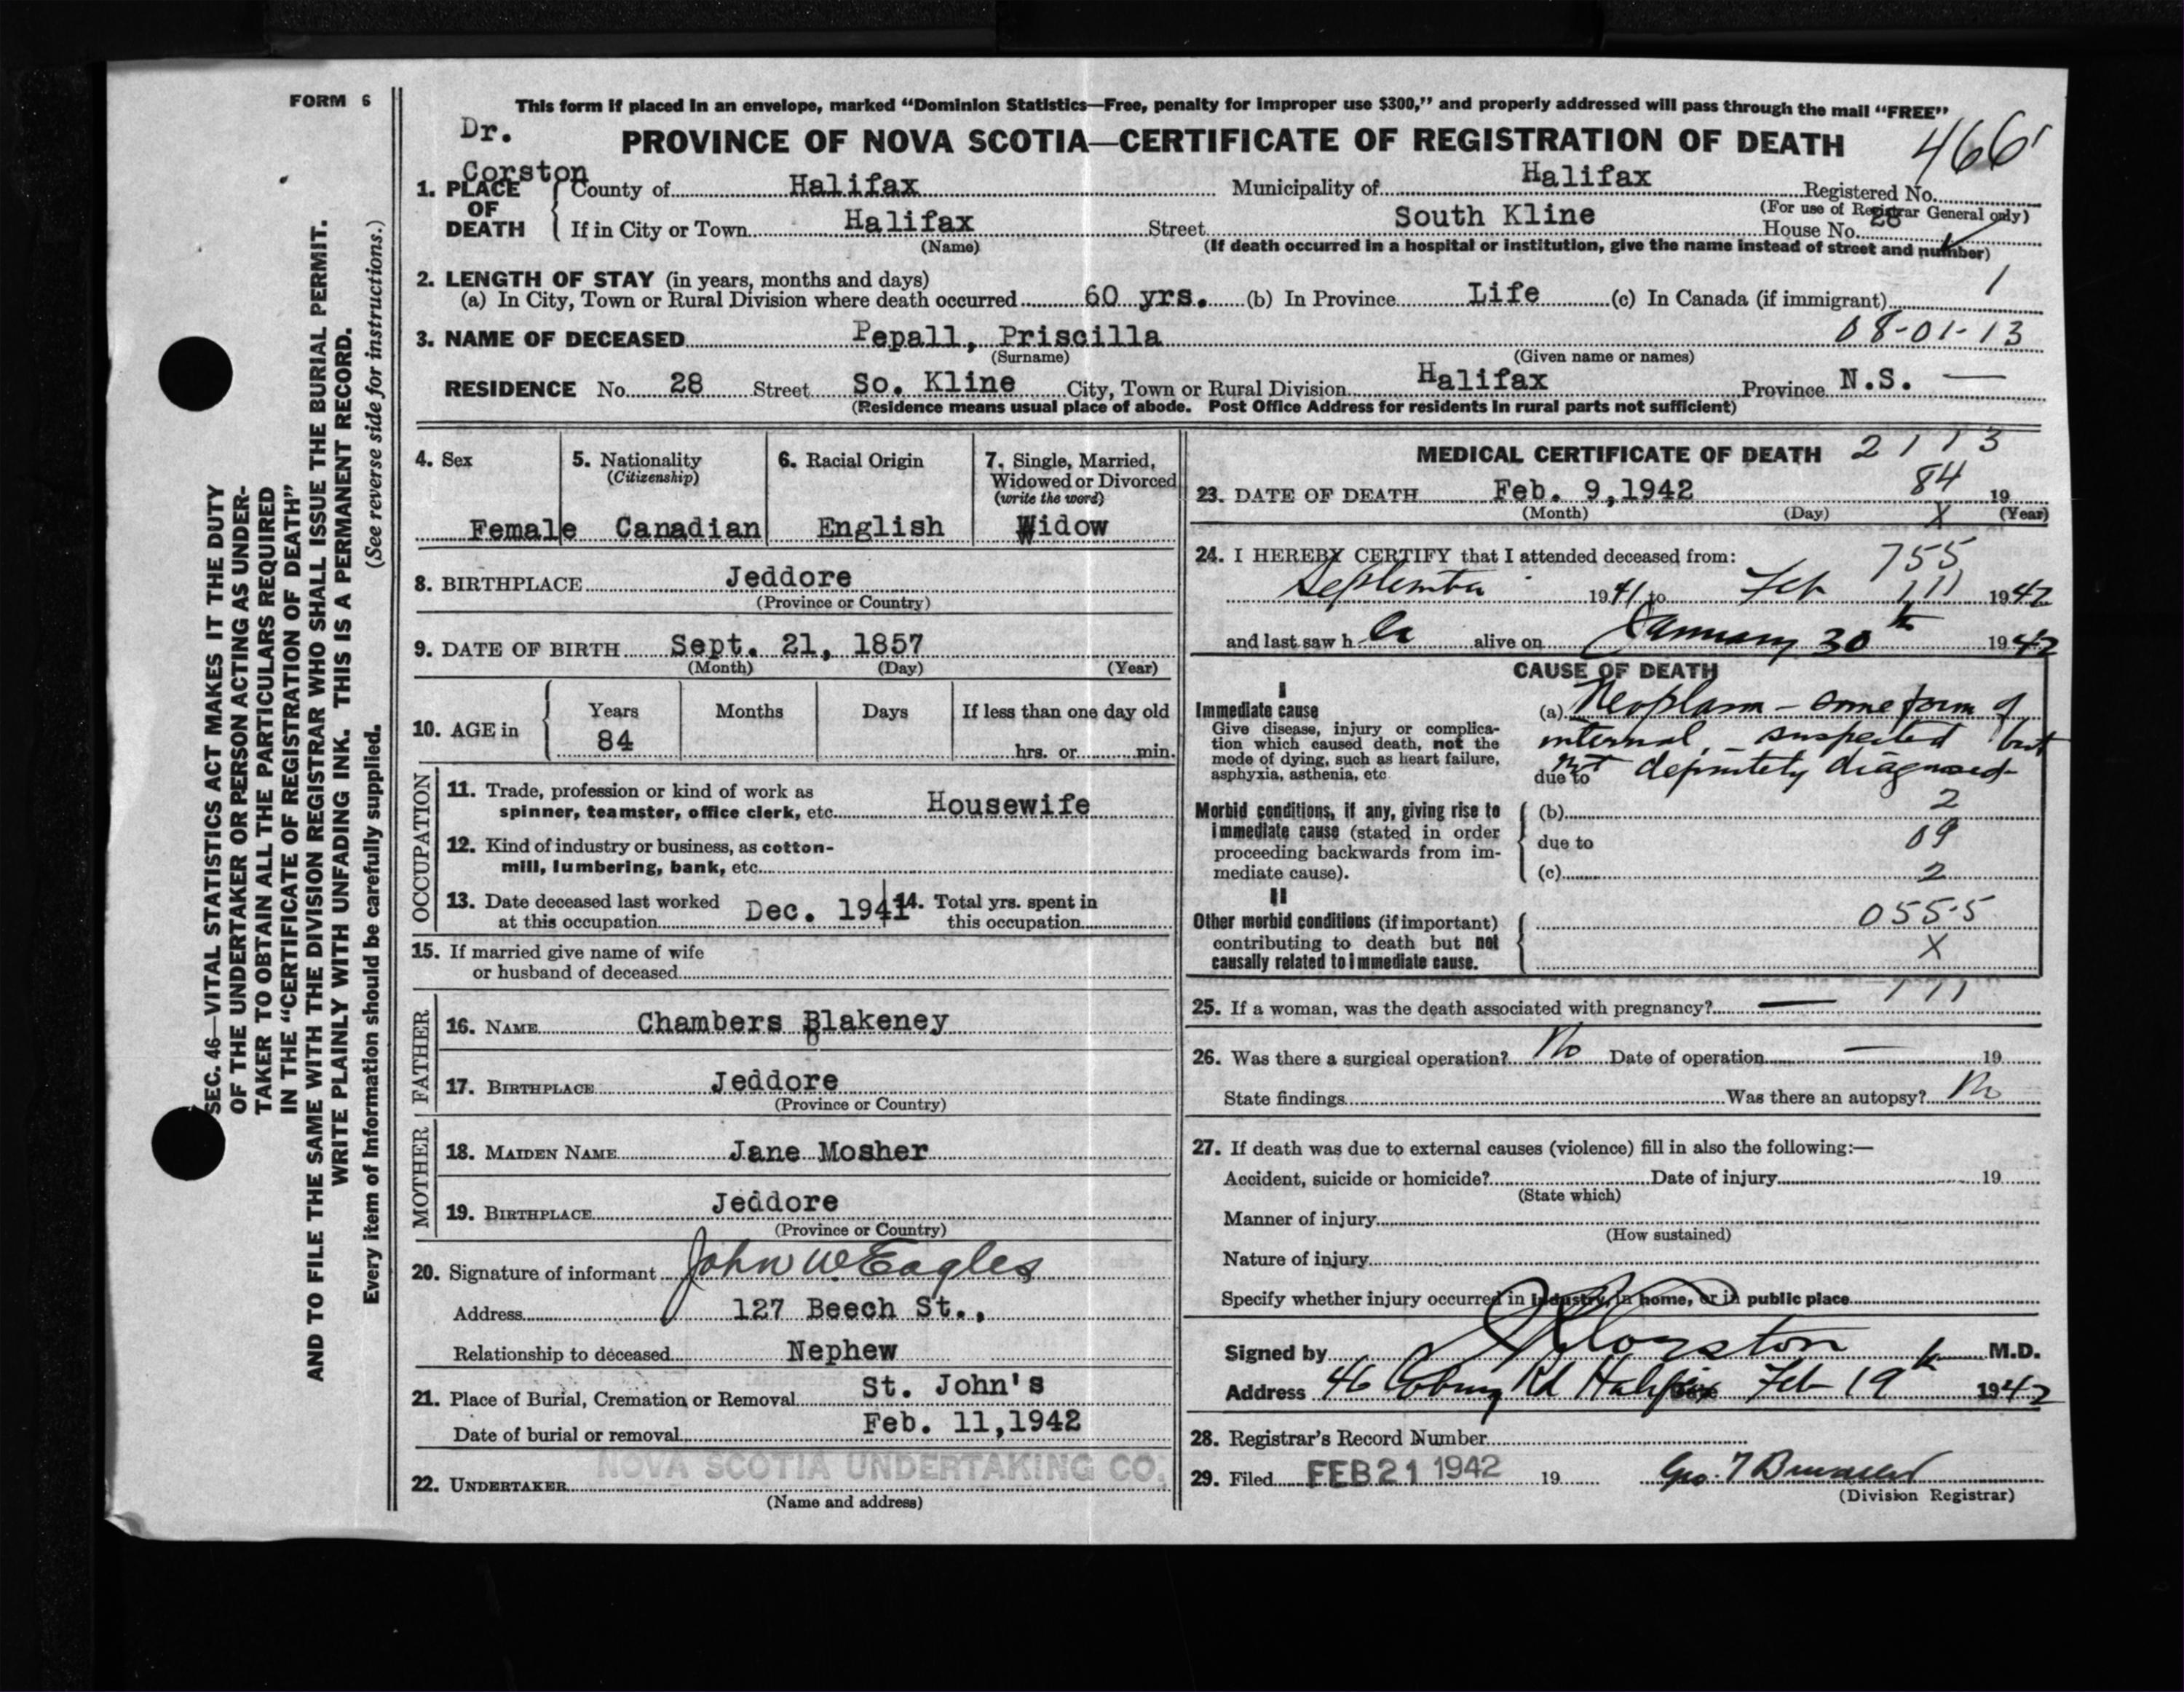 FORM 6
This form if placed in an envelope, marked “Dominion Statistics—Free, penalty for improper use $300,” and properly addressed will pass through the mail “FREE”
Dr.
Corston
PROVINCE OF NOVA SCOTIA—CERTIFICATE OF REGISTRATION OF DEATH
466
1. PLACE OF DEATH
County of Halifax Municipality of Halifax Registered No.
(For use of Registrar General only)
If in City or Town Halifax Street South Kline House No. 28
(Name) (If death occurred in a hospital or institution, give the name instead of street and number)
2. LENGTH OF STAY (in years, months and days)
(a) In City, Town or Rural Division where death occurred 60 yrs. (b) In Province Life (c) In Canada (if immigrant) 1
3. NAME OF DECEASED Pepall, Priscilla 08-01-13
(Surname) (Given name or names)
RESIDENCE No. 28 Street So. Kline City, Town or Rural Division Halifax Province N.S. —
(Residence means usual place of abode. Post Office Address for residents in rural parts not sufficient)
4. Sex
Female
5. Nationality
(Citizenship)
Canadian
6. Racial Origin
English
7. Single, Married,
Widowed or Divorced
(write the word)
Widow
8. BIRTHPLACE Jeddore
(Province or Country)
9. DATE OF BIRTH Sept. 21, 1857
(Month) (Day) (Year)
10. AGE in
Years Months Days If less than one day old
84 hrs. or min.
OCCUPATION
11. Trade, profession or kind of work as
spinner, teamster, office clerk, etc. Housewife
12. Kind of industry or business, as cotton-
mill, lumbering, bank, etc.
13. Date deceased last worked
at this occupation Dec. 1941
14. Total yrs. spent in
this occupation
15. If married give name of wife
or husband of deceased
FATHER
16. NAME Chambers Blakeney
17. BIRTHPLACE Jeddore
(Province or Country)
MOTHER
18. MAIDEN NAME Jane Mosher
19. BIRTHPLACE Jeddore
(Province or Country)
20. Signature of informant John W Eagles
Address 127 Beech St.,
Relationship to deceased Nephew
21. Place of Burial, Cremation or Removal St. John's
Date of burial or removal Feb. 11,1942
22. UNDERTAKER NOVA SCOTIA UNDERTAKING CO.
(Name and address)
MEDICAL CERTIFICATE OF DEATH 2113
84
23. DATE OF DEATH Feb. 9,1942 19
(Month) (Day) X (Year)
24. I HEREBY CERTIFY that I attended deceased from: 755
September 1941 to Feb 111 1942
and last saw h er alive on January 30th 1942
CAUSE OF DEATH
I
Immediate cause
Give disease, injury or complica-
tion which caused death, not the
mode of dying, such as heart failure,
asphyxia, asthenia, etc
(a) Neoplasm — some form of
internal, — suspected but
due to not definitely diagnosed
Morbid conditions, if any, giving rise to
immediate cause (stated in order
proceeding backwards from im-
mediate cause).
(b) 2
due to 09
(c) 2
II
Other morbid conditions (if important)
contributing to death but not
causally related to immediate cause.
055.5
X
25. If a woman, was the death associated with pregnancy? — 111
26. Was there a surgical operation? No Date of operation — 19
State findings Was there an autopsy? No
27. If death was due to external causes (violence) fill in also the following:—
Accident, suicide or homicide? Date of injury 19
(State which)
Manner of injury
(How sustained)
Nature of injury
Specify whether injury occurred in industry, in home, or in public place
Signed by Corston M.D.
Address 46 Coburg Rd Halifax Date Feb 19th 1942
28. Registrar's Record Number
29. Filed FEB 21 1942 19
(Division Registrar)
SEC. 46—VITAL STATISTICS ACT MAKES IT THE DUTY
OF THE UNDERTAKER OR PERSON ACTING AS UNDER-
TAKER TO OBTAIN ALL THE PARTICULARS REQUIRED
IN THE “CERTIFICATE OF REGISTRATION OF DEATH”
AND TO FILE THE SAME WITH THE DIVISION REGISTRAR WHO SHALL ISSUE THE BURIAL PERMIT.
WRITE PLAINLY WITH UNFADING INK. THIS IS A PERMANENT RECORD.
Every item of information should be carefully supplied. (See reverse side for instructions.)